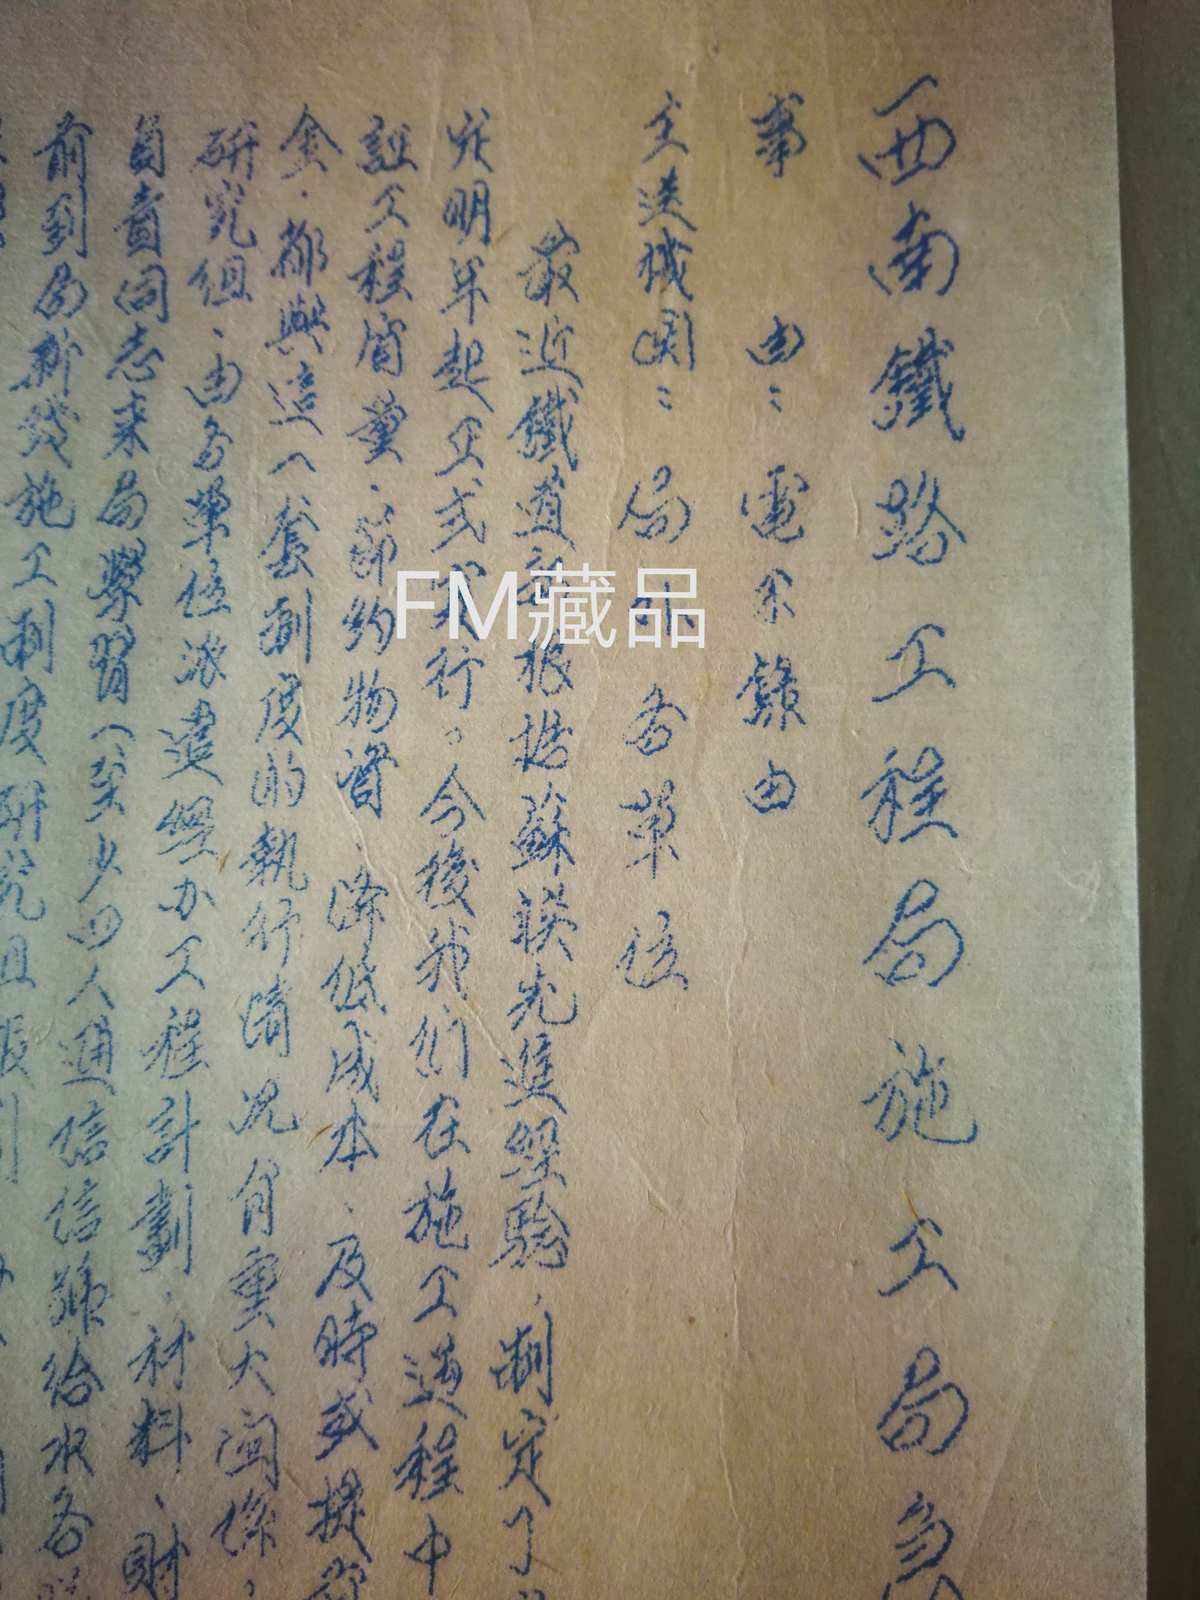 西南鐵路工程局施工局
事 由：電不錄由
主送機関：局外各單位
最近鐵道部根據蘇联先進經驗，制定了
明年起正式实行。今後我们在施工過程中
証工程質量、節約物資、降低成本、及時或提
金、都與這一套制度的執行情况有重大関係，
研究組，由各單位派遣經办工程計劃、材料、財
負責同志来局學習（至少四人通信信號給水各
前到局
施工制度研究
FM藏品